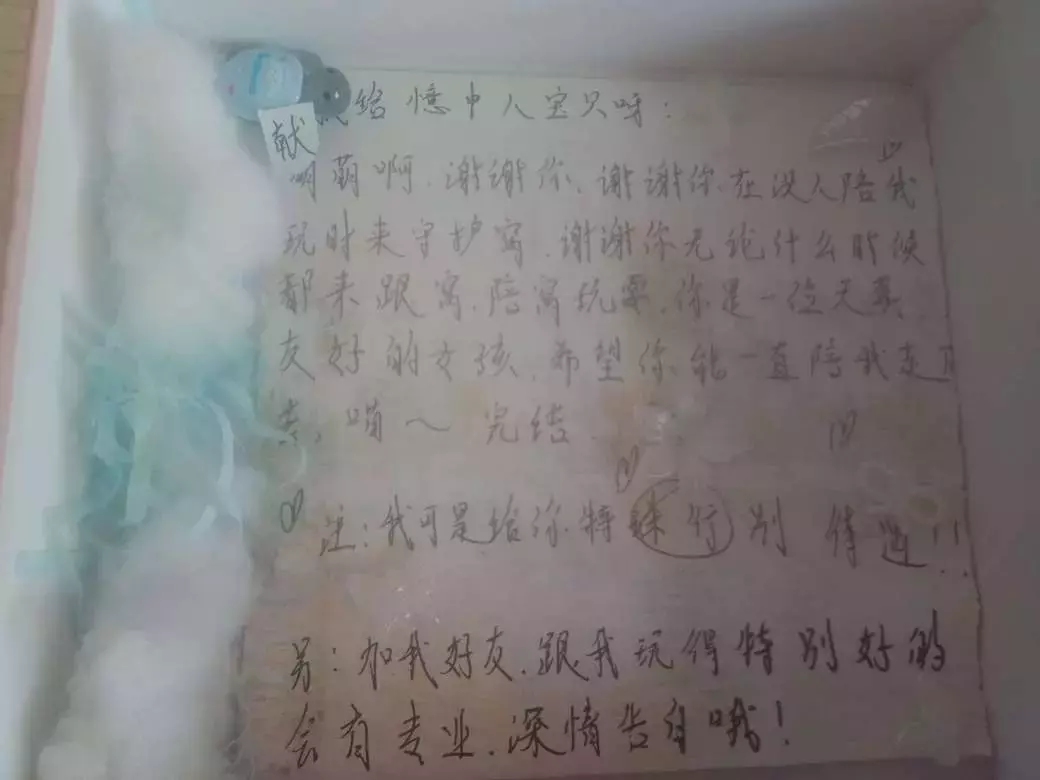 献给憶中人宝贝呀:
萌啊.谢谢你.谢谢你在没人陪我
玩时来守护窝.谢谢你无论什么时候
都来跟窝.陪窝玩耍.你是一位天真
友好的女孩.希望你能一直陪我走下
去,啃~完结.
注:我可是给你特殊行别待遇!!
另:加我好友.跟我玩得特别好的
会有专业.深情告白哦!